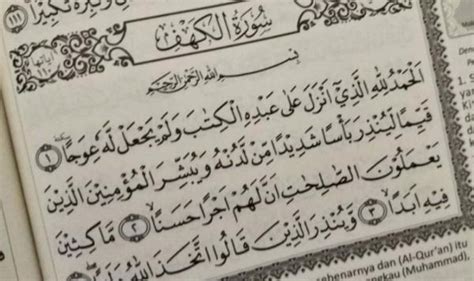 وَكَبِّرْهُ تَكْبِيْرًا ࣖ ١١١
سُوْرَةُ الْكَهْفِ
اٰياتها ١١٠
بِسْمِ اللّٰهِ الرَّحْمٰنِ الرَّحِيْمِ
اَلْحَمْدُ لِلّٰهِ الَّذِيْٓ اَنْزَلَ عَلٰى عَبْدِهِ الْكِتٰبَ وَلَمْ يَجْعَلْ لَّهٗ عِوَجًا ۜ ١
قَيِّمًا لِّيُنْذِرَ بَأْسًا شَدِيْدًا مِّنْ لَّدُنْهُ وَيُبَشِّرَ الْمُؤْمِنِيْنَ الَّذِيْنَ
يَعْمَلُوْنَ الصّٰلِحٰتِ اَنَّ لَهُمْ اَجْرًا حَسَنًا ۙ ٢ مَّاكِثِيْنَ
فِيْهِ اَبَدًا ۙ ٣ وَّيُنْذِرَ الَّذِيْنَ قَالُوا اتَّخَذَ اللّٰهُ
1.
yan
sebenarnya dan (Al-Qur'an) itu
engkau (Muhammad),